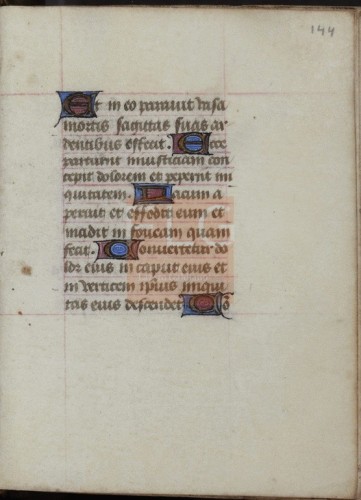 144
Et in eo parauit vasa
mortis sagittas suas ar
dentibus effecit. Ecce
parturiit iniusticiam con
cepit dolorem et peperit ini
quitatem. Lacum a
peruit et effodit eum et
incidit in foueam quam
fecit. Conuertetur do
lor eius in caput eius et
in verticem ipsius iniqui
tas eius descendet Cō